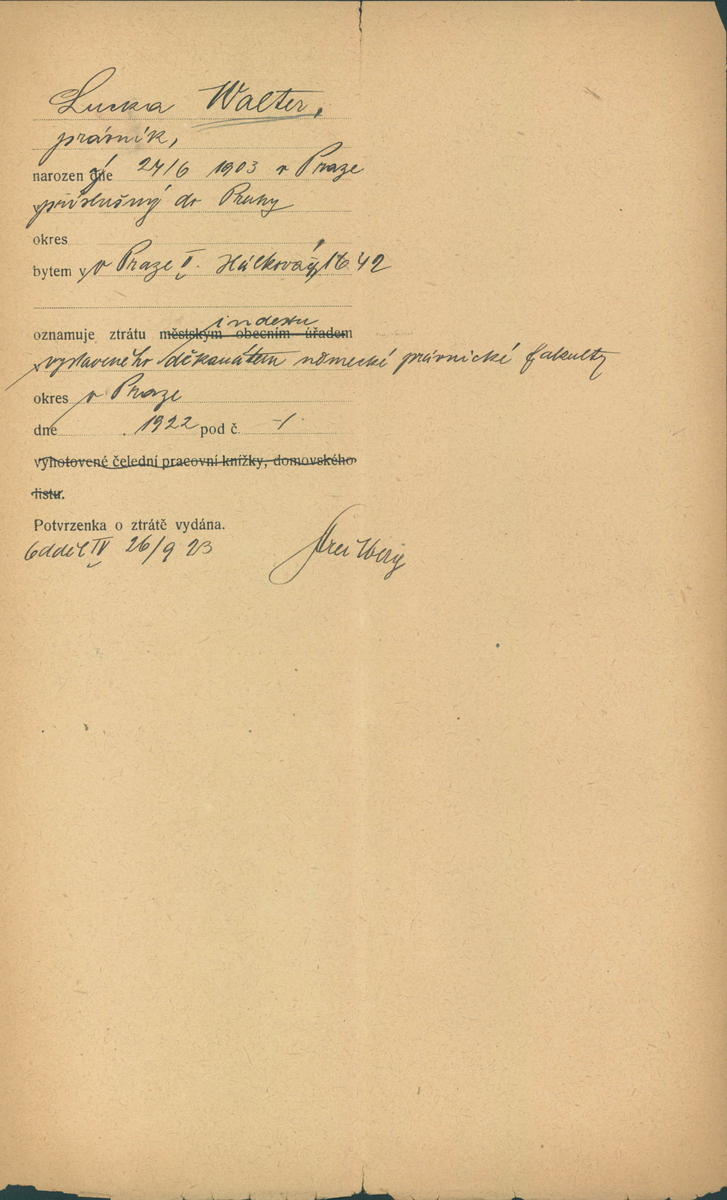 Lucka Walter,
právník,
narozen dne 27/6 1903 v Praze
příslušný do Prahy
okres
bytem v v Praze II. Hálkova 42
indexu
oznamuje ztrátu městským obecním úřadem
vystaveného děkanátem německé právnické fakulty
okres v Praze
dne 1922 pod č. -/-
vyhotovené čelední pracovní knížky, domovského
listu.
Potvrzenka o ztrátě vydána.
Odděl IV 26/9 23